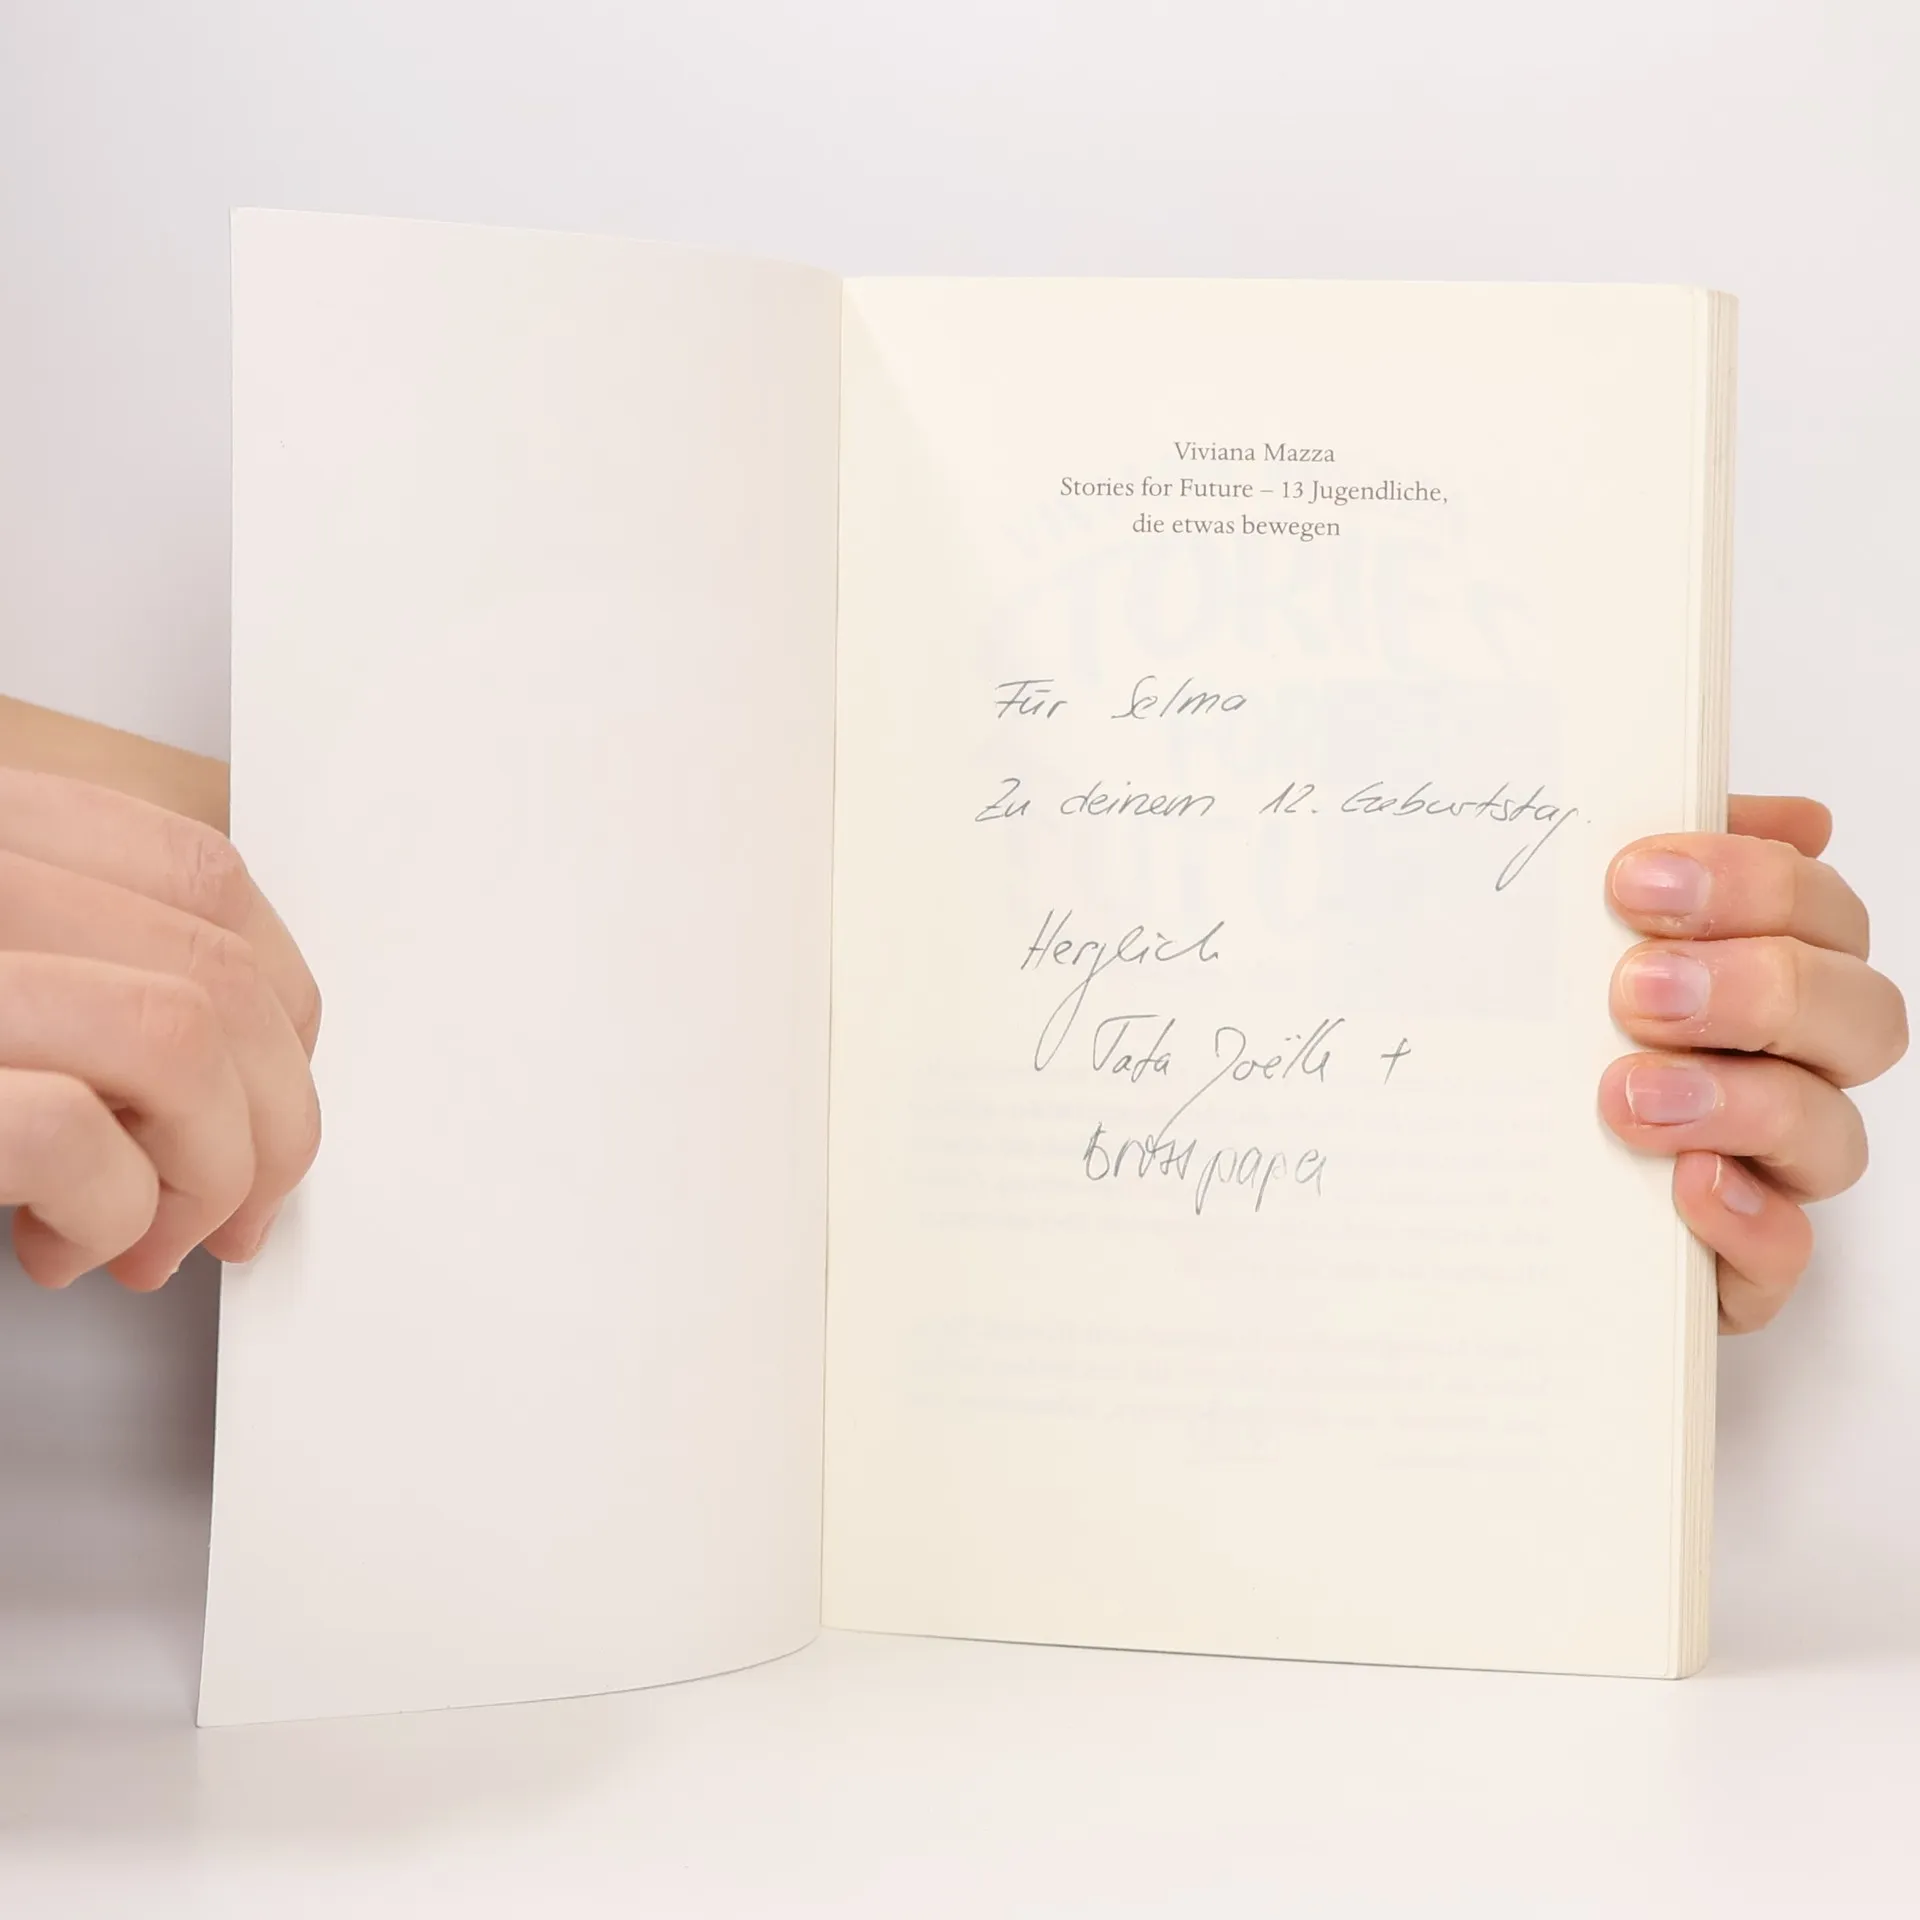 Viviana Mazza
Stories for Future – 13 Jugendliche,
die etwas bewegen
Für Selma
Zu deinem 12. Geburtstag.
Herzlich
Tata Joëlle +
Grosspapa